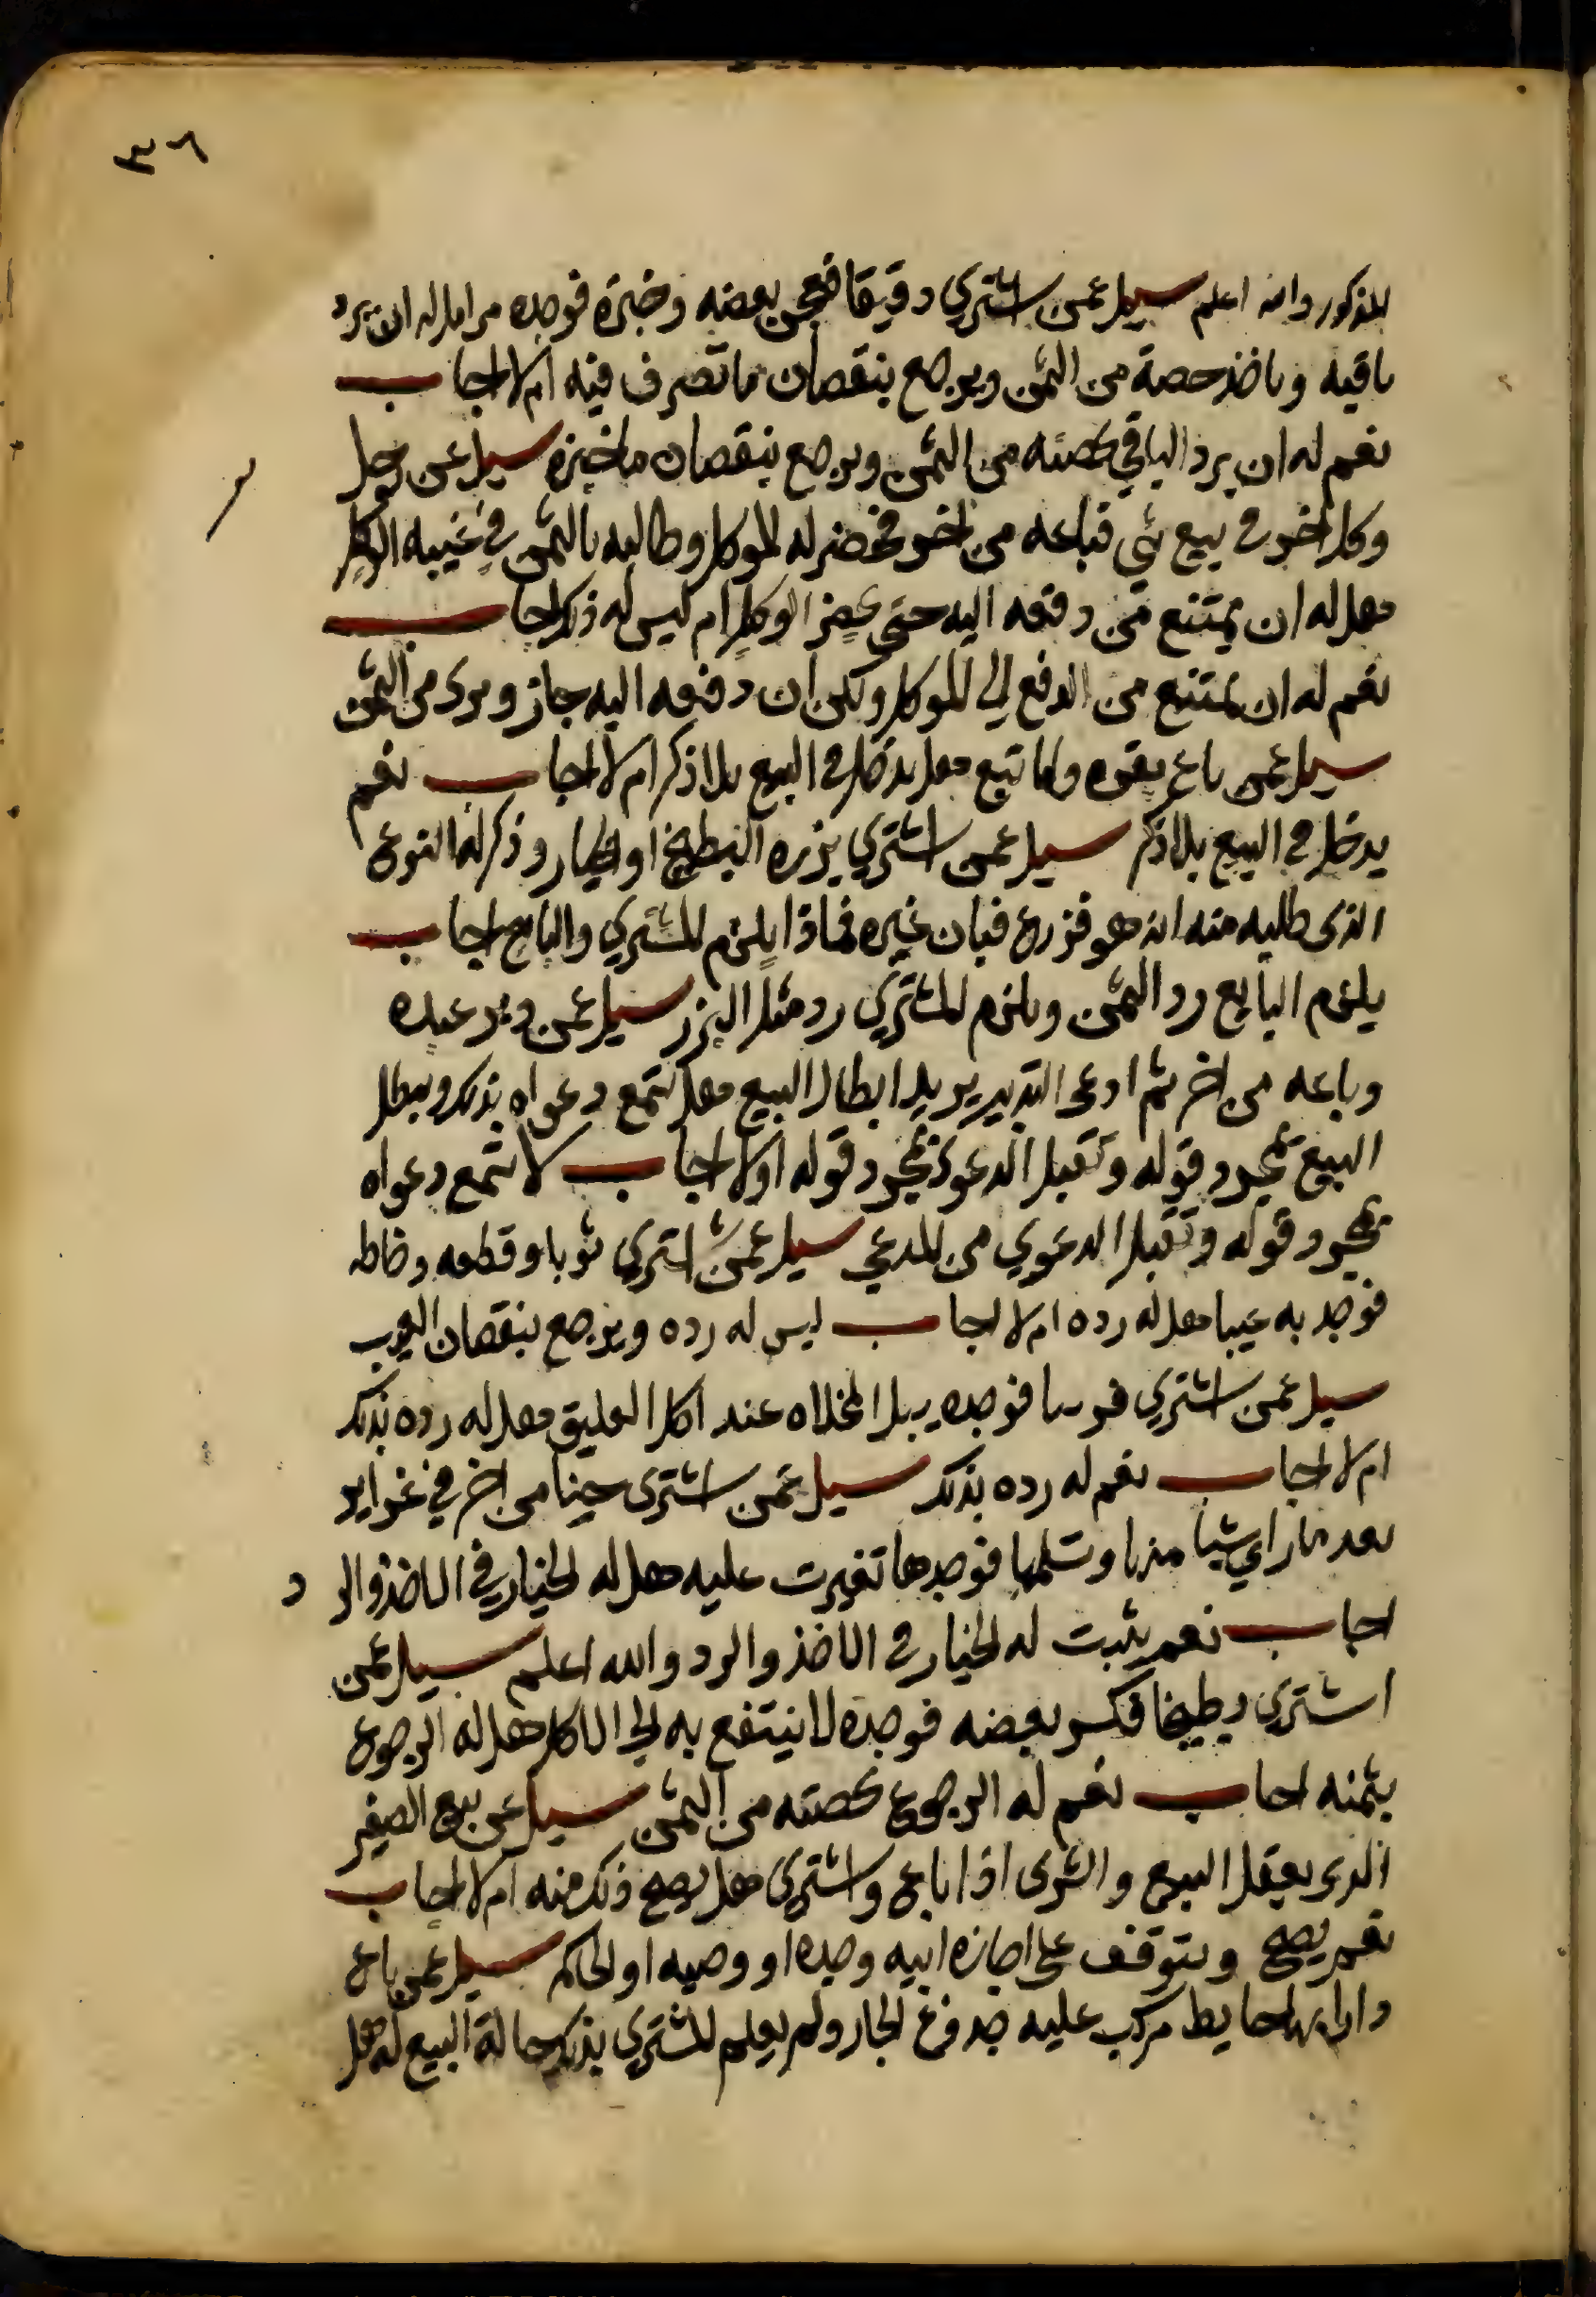 ٣٦
المذكور والله اعلم سيل عمن اشتري دقيقا فعجن بعضه وخبزه فوجده مرا هل له ان يرد
باقيه وياخذ حصة من الثمن ويرجع بنقصان ما تصرف فيه ام لا اجاب
نعم له ان يرد الباقي بحصته من الثمن ويرجع بنقصان ما خبزه سيل عن رجل
وكل اخر في بيع شي فباعه من اخر فحضر له الموكل وطالبه بالثمن في غيبه الوكيل
هل له ان يمتنع من دفعه اليه حتي يحضر الوكيل ام ليس له ذلك اجاب
نعم له ان يمتنع من الدفع الي الموكل ولكن ان دفعه اليه جاز وبرى من الثمن
سيل عمن باع بقره ولها تبع هل يدخل في البيع بلا ذكر ام لا اجاب نعم
يدخل في البيع بلا ذكر سيل عمن اشتري بزره البطيخ او الخيار وذكر له النوع
الذى طلبه منه انه هو فزرع فبان غيره فماذا يلزم المشتري والبايع اجاب
يلزم البايع رد الثمن ويلزم المشتري رد مثل البزر سيل عمن دبر عبده
وباعه من اخر ثم ادعى التدبير يريد ابطال البيع هل تسمع دعواه بذلك ويبطل
البيع بمجرد قوله وتقبل الدعوى بمجرد قوله اولا اجاب لا تسمع دعواه
بمجرد قوله وتقبل الدعوي من المدعي سيل عمن اشتري ثوبا وقطعه وخاطه
فوجد به عيبا هل له رده ام لا اجاب ليس له رده ويرجع بنقصان العيب
سيل عمن اشتري فرسا فوجده يبل المخلاه عند اكل العليق هل له رده بذلك
ام لا اجاب نعم له رده بذلك سيل عمن اشترى جبنا من اخر في غراير
بعد ما راي شيا منها وتسلمها فوجدها تغيرت عليه هل له الخيار في الاخذ والرد
اجاب نعم يثبت له الخيار في الاخذ والرد والله اعلم سيل عمن
اشتري بطيخا فكسر بعضه فوجده لا ينتفع به لي الاكل هل له الرجوع
بثمنه اجاب نعم له الرجوع بحصته من الثمن سيل عن بيع الصغير
الذى يعقل البيع والشرى اذا باع واشتري هل يصح ذلك منه ام لا اجاب
نعم يصح ويتوقف على اجازه ابيه وجده او وصيه او الحاكم سيل عمن باع
دارا بها حايط مركب عليه جدوع الجار ولم يعلم المشتري بذلك حالة البيع له هل